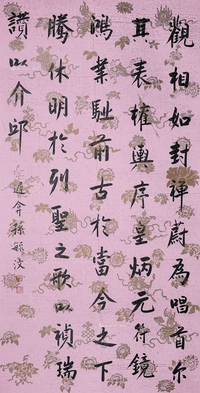 觀相如封禪蔚為唱首尔
其表權輿序皇炳元符鏡
鴻業駈前古於當今之下
騰休明於列聖之歌以禎瑞
讚以介邱
遲弇孫毓汶